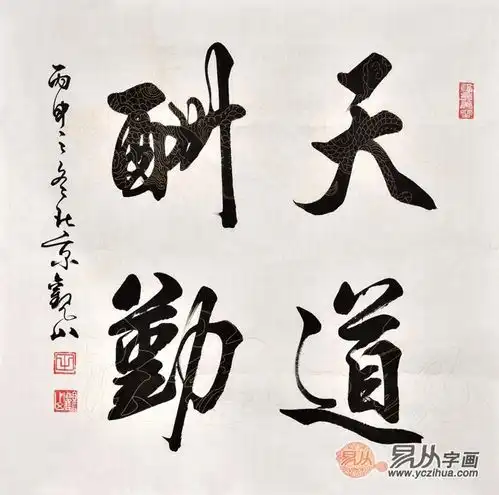 天道
酬勤
丙申之冬北京觀山
易从字画
www.yczihua.com